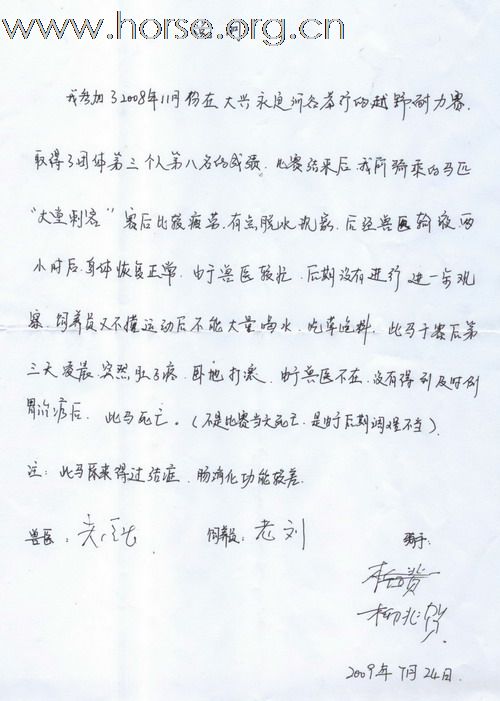 www.horse.org.cn
我参加了2008年11月份在大兴永定河举行的越野耐力赛,
取得了团体第三个人第八名的成绩。比赛结束后,我所骑乘的马匹
"大堂刺客"赛后比较疲劳,有点脱水现象,后经兽医输液,两
小时后,身体恢复正常。由于兽医较忙,后期没有进行进一步观
察,饲养员又不懂运动后不能大量喝水、吃草吃料,此马于赛后第
三天凌晨,突然肚子疼,卧地打滚,由于兽医不在,没有得到及时倒
胃治疗后,此马死亡。(不是比赛当天死亡,是由于后期调理不当)
注:此马原来得过结症,肠消化功能较差.
兽医: 饲养员:老刘 骑手:
2009年 月24日.